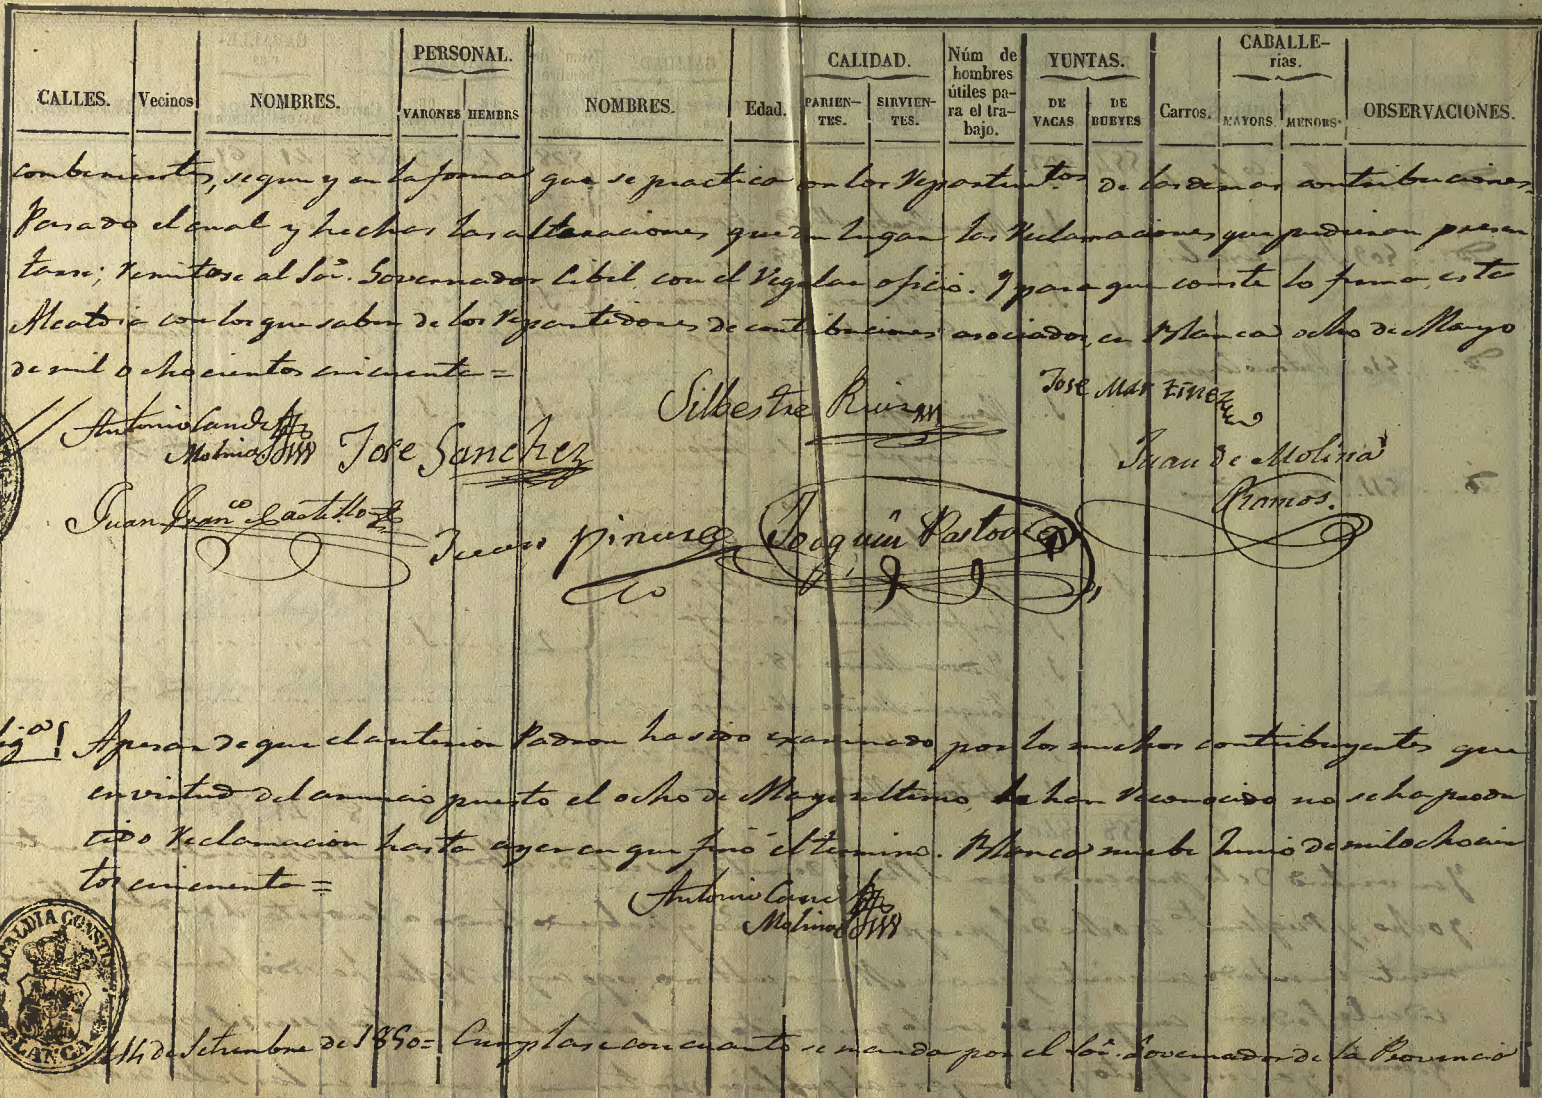 CALLES. Vecinos NOMBRES. PERSONAL. VARONES HEMBRS NOMBRES. Edad. CALIDAD. PARIEN-TES. SIRVIEN-TES. Núm de hombres útiles pa-ra el tra-bajo. YUNTAS. DE VACAS DE BUEYES Carros. CABALLE-rias. MAYORS MENORS. OBSERVACIONES.
combenientes, segun y en la forma que se practica con los Repartimtos. de las demas contribuciones.
Pasado el cual y hechas las alteraciones que den lugar las Reclamaciones que pudieran presen
tarse; Remitase al Sor. Governador Cibil con el Regular oficio. Y para que conste lo firma esta
Alcaldia con los que saben de los Repartidores de contribuciones asociados, en Blanca ocho de Mayo
de mil ochocientos cincuenta=
Silbestre Ruiz
Jose Martinez
Antonio Cano
Molina
Jose Sanchez
Juan de Molina
Ramos.
Juan Franco Castillo
Juan Pinar
Joaquin Pastor
Apesar de que el anterior Padron ha sido examinado por los muchos contribuyentes que
en virtud del anuncio puesto el ocho de Mayo ultimo, le han Reconocido no se ha produ
cido Reclamacion hasta ayer en que finó el termino. Blanca nuebe Junio de mil ochocien
tos cincuenta=
Antonio Cano
Molina
ALCALDIA CONSTIT
BLANCA
14 de Setiembre de 1850= Cumplase con cuanto se manda por el Sor. Governador de la Provincia